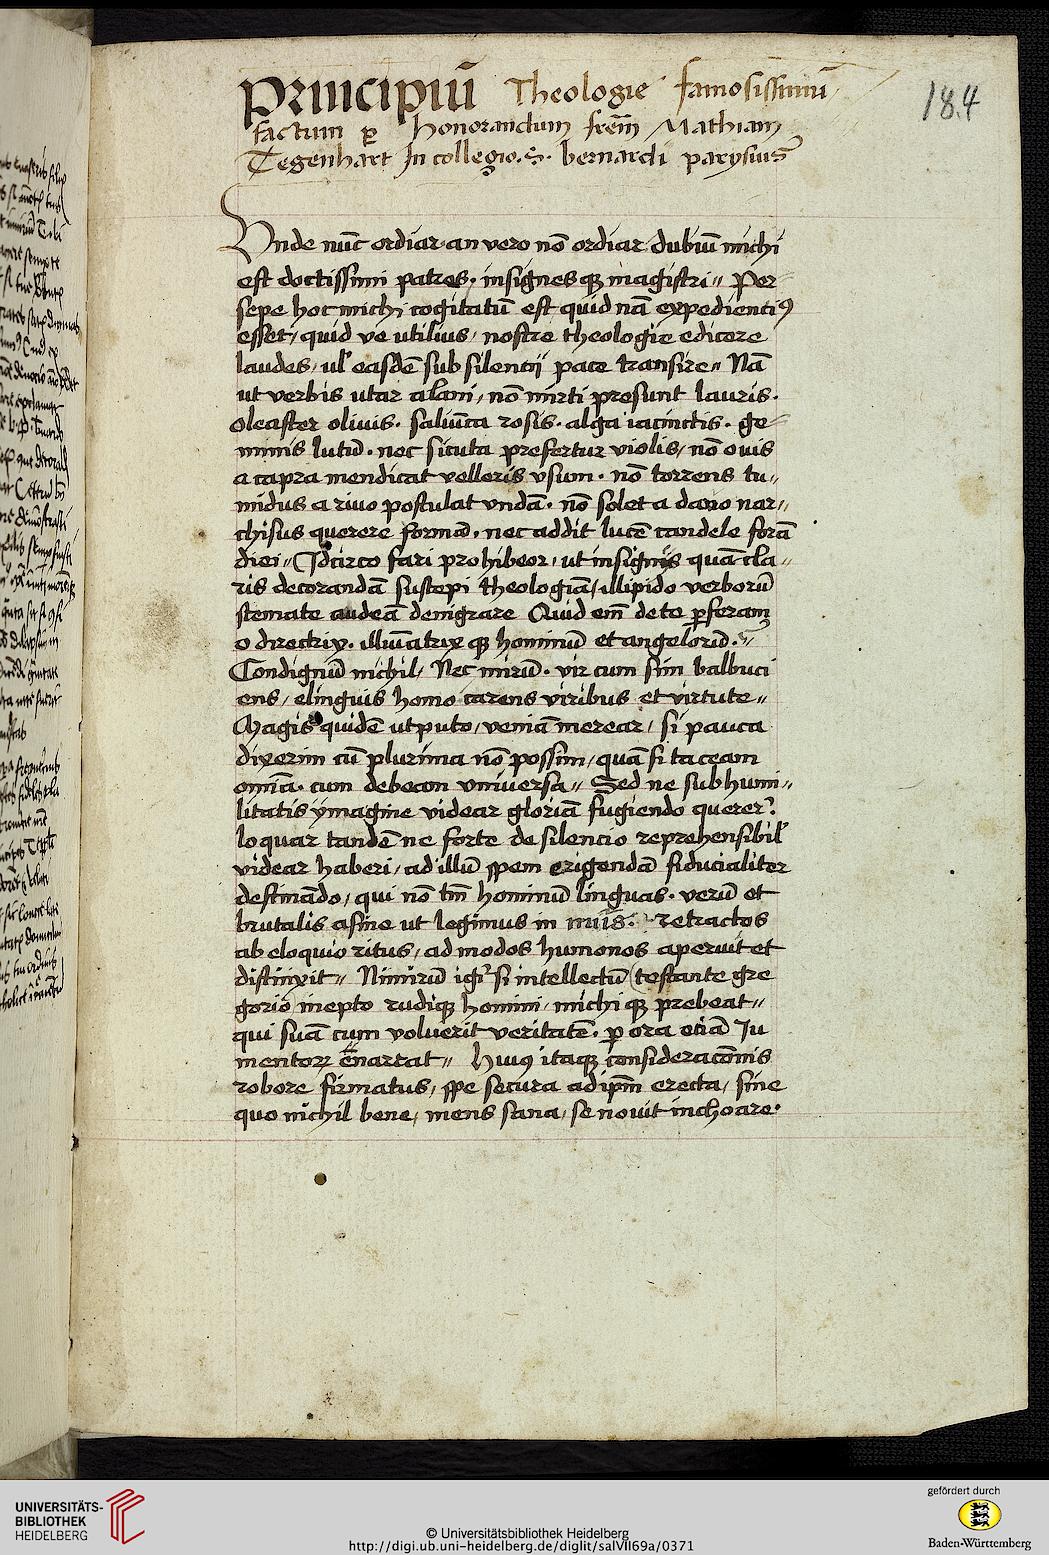 principiū Theologie famosissimū
factum ꝑ honorandum frēm Mathiam
Tegenhart In collegio .S. bernardi parysius
184
Unde nūc ordiar an vero nō ordiar dubiū michi
est doctissimi patres, insignesqꝫ magistri Per
sepe hoc michi cogitatū est quid nā expedientiꝰ
esset, quid ve utilius, nostre theologie edicere
laudes, ul' easdē sub silencij pace transire Nā
ut verbis utar alani, nō mirti presunt lauris.
oleaster olivis. saliūca rosis. alga iacinctis. ge
mmis lutū. nec sicuta prefertur violis, nō ovis
a capra mendicat velleris usum. nō torrens tu
midus a rivo postulat undā. nō solet a davo nar
chisus querere formā. nec addit lucē candele forā
diei Idcirco fari prohibeor, ut insignijs quā cla
ris decorandā suscepi theologiā, illipido verborū
stemate audeā denigrare Quid em̄ de te ꝑferam
o directrix. illuīatrix qꝫ hominū et angelorū.
Condignū nichil, Nec mirū. vir cum sim balbuci
ens, elinguis homo carens viribus et virtute
Magis quidē ut puto, veniā merear, si pauca
dixerim cū plurima nō possim, quā si taceam
omīa. cum debeam universa Sed ne sub humi
litatis ymagine videar gloriā fugiendo querer?
loquar tandē ne forte de silencio reprehensibil'
videar haberi, ad illū spem erigendā fiducialiter
destinādo, qui nō tm̄ hominū linguas. verū et
brutalis asine ut legimus in retractos
ab eloquio ritus, ad modos humonos aperuit et
distinxit Nimirū igr̄ si intellectū testante gre
gorio inepto rudiqꝫ homini michi qꝫ prebeat
qui suā cum voluerit veritatē. ꝑ ora etiā Iu
mentoꝝ ēnarrat huiꝰ itaqꝫ consideracōnis
robore firmatus, spe secura ad ipm̄ erecta, sine
quo nichil bene, mens sana, se novit inchoare.
UNIVERSITÄTS-
BIBLIOTHEK
HEIDELBERG
© Universitätsbibliothek Heidelberg
http://digi.ub.uni-heidelberg.de/diglit/salVII69a/0371
gefördert durch
Baden-Württemberg